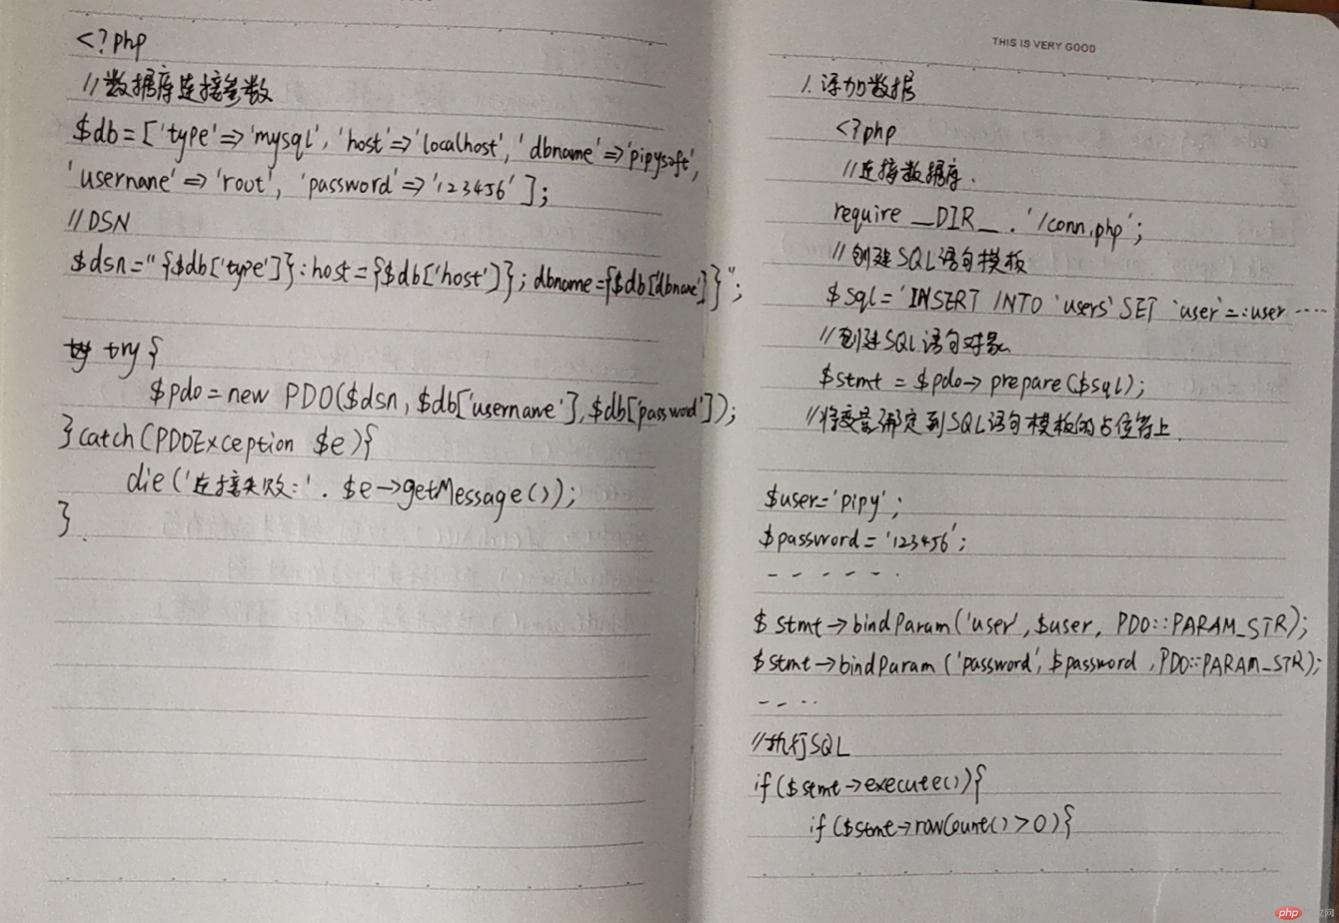 <?php
//数据库连接参数
$db=['type'=>'mysql', 'host'=>'localhost', 'dbname'=>'pipysoft',
'username'=>'root', 'password'=>'123456'];
//DSN
$dsn="{$db['type']}:host={$db['host']};dbname={$db[dbname']}";
try try{
$pdo=new PDO($dsn,$db['username'],$db['password']);
}catch(PDOException $e){
die('连接失败:'.$e->getMessage());
}
THIS IS VERY GOOD
1.添加数据
<?php
//连接数据库.
require __DIR__.'/conn.php';
//创建SQL语句模板
$sql='INSERT INTO `users` SET `user`=:user ....
//创建SQL语句对象
$stmt = $pdo->prepare($sql);
//将变量绑定到SQL语句模板的占位符上.
$user='pipy';
$password='123456';
- - - - - -
$stmt->bindParam('user',$user, PDO::PARAM_STR);
$stmt->bindParam('password',$password,PDO::PARAM_STR);
- - - -
//执行SQL
if($stmt->execute()){
if($stmt->rowCount()>0){
php